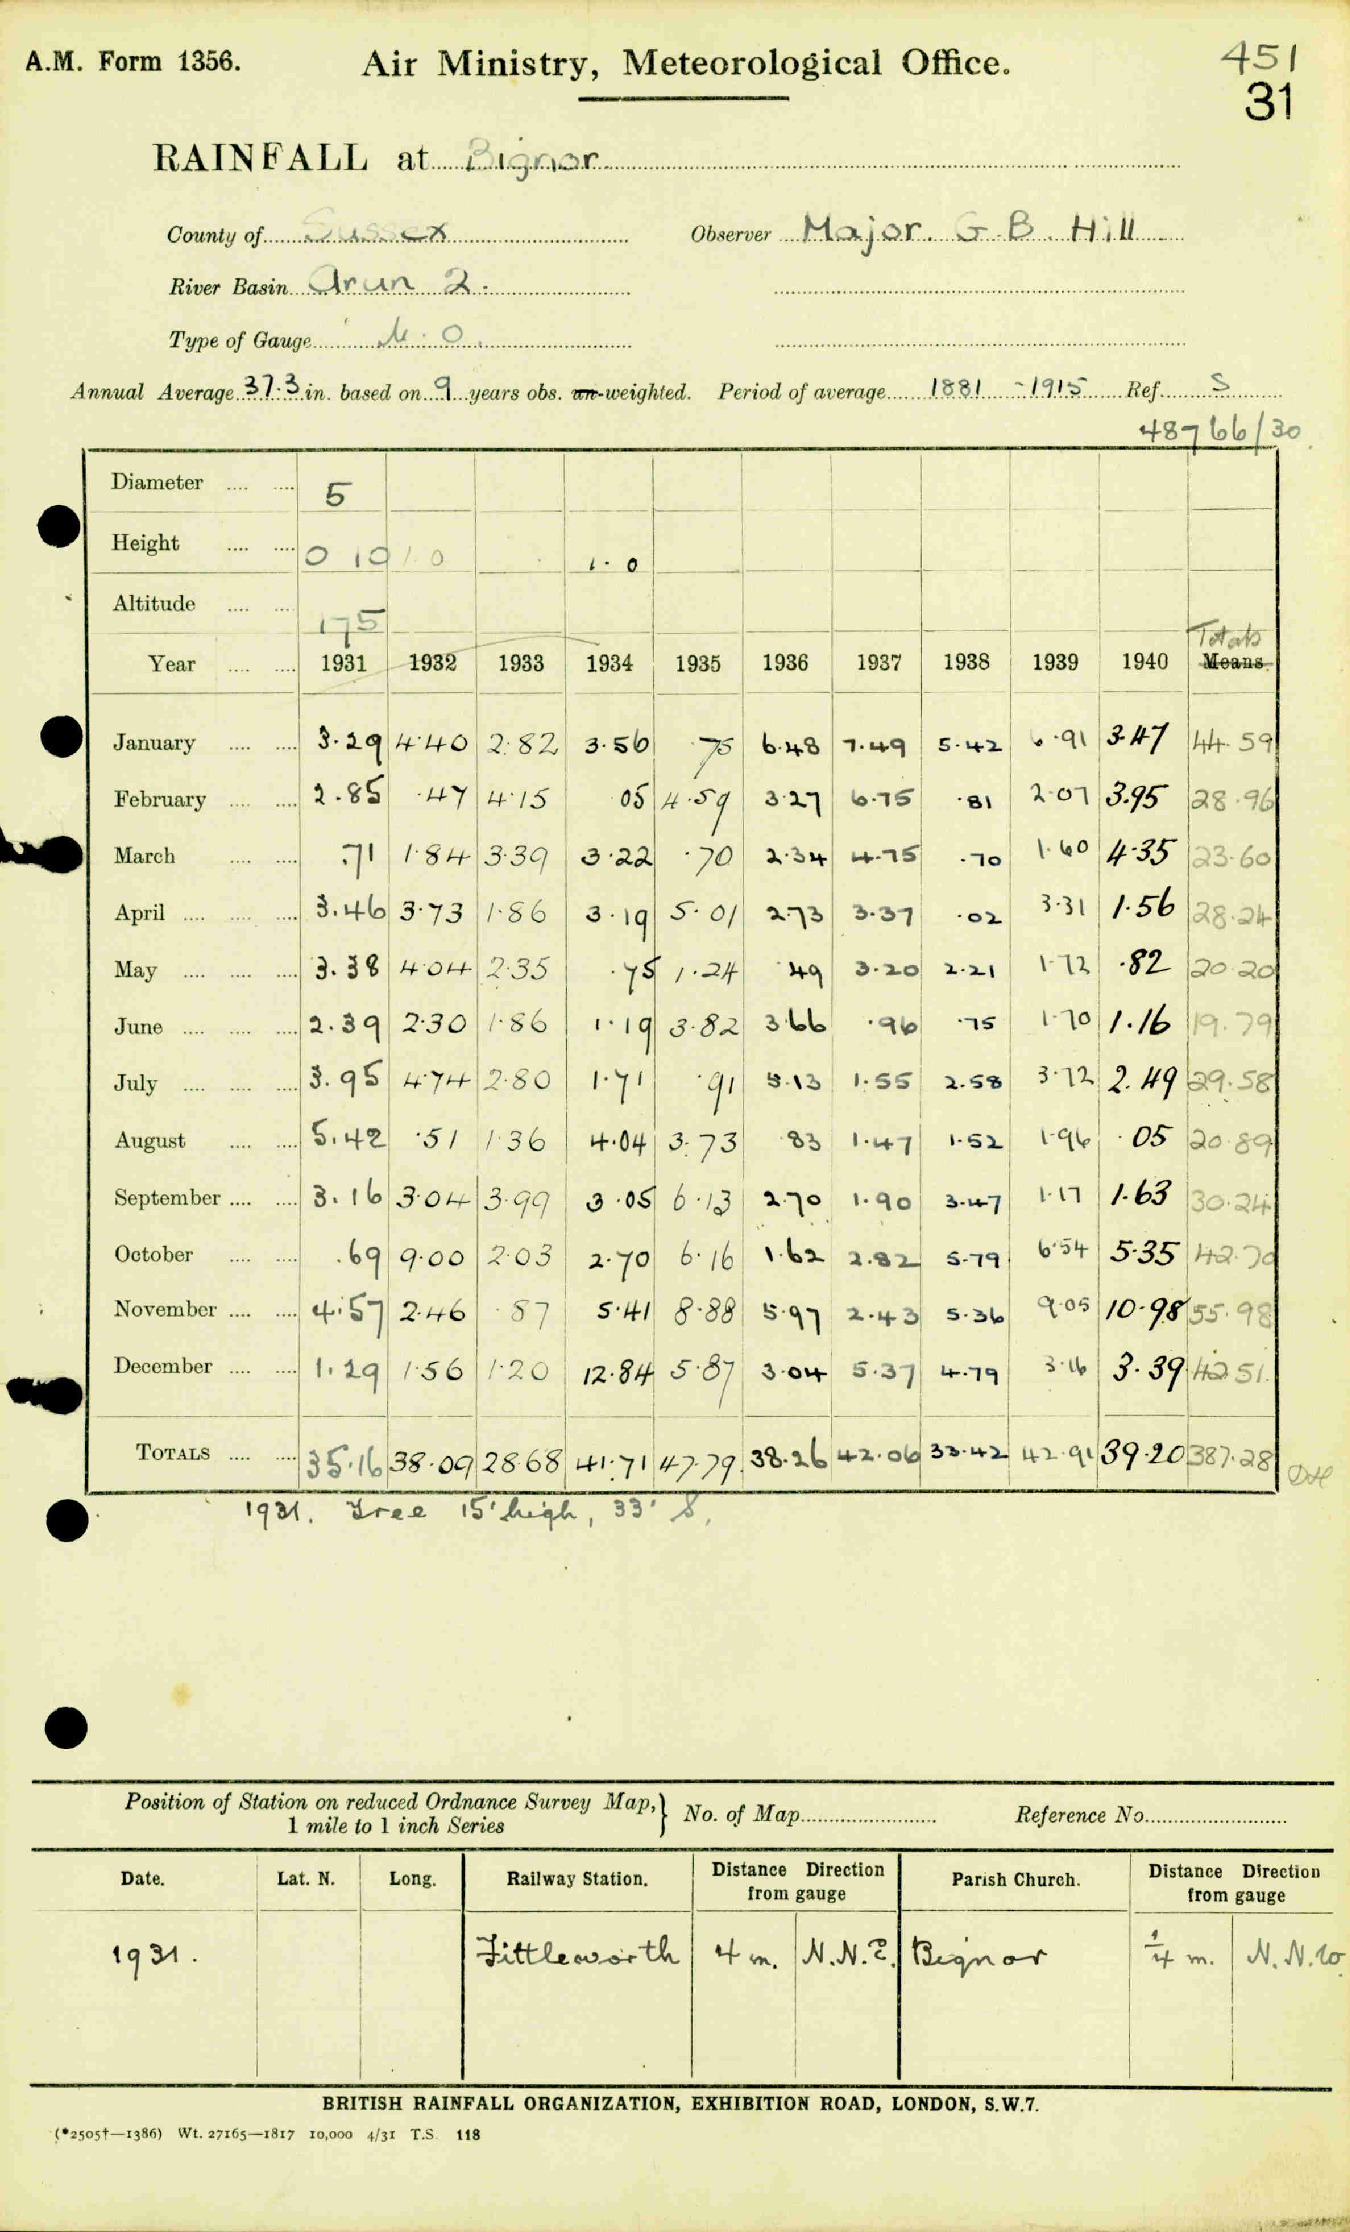 A.M. Form 1356. Air Ministry, Meteorological Office. 451
31
RAINFALL at Bignor
County of Sussex Observer Major. G. B. Hill
River Basin Arun 2.
Type of Gauge M.O.
Annual Average 37.3 in. based on 9 years obs. un-weighted. Period of average 1881 - 1915 Ref. S
48766/30
Diameter 5
Height 0 10 1.0 1.0
Altitude 175
Totals
Year 1931 1932 1933 1934 1935 1936 1937 1938 1939 1940 Means.
January 3.29 4.40 2.82 3.56 .75 6.48 7.49 5.42 6.91 3.47 44.59
February 2.85 .47 4.15 05 4.59 3.27 6.75 .81 2.07 3.95 28.96
March .71 1.84 3.39 3.22 .70 2.34 4.75 .70 1.60 4.35 23.60
April 3.46 3.73 1.86 3.19 5.01 2.73 3.37 .02 3.31 1.56 28.24
May 3.38 4.04 2.35 .75 1.24 .49 3.20 2.21 1.72 .82 20.20
June 2.39 2.30 1.86 1.19 3.82 3.66 .96 .75 1.70 1.16 19.79
July 3.95 4.74 2.80 1.71 .91 5.13 1.55 2.58 3.72 2.49 29.58
August 5.42 .51 1.36 4.04 3.73 83 1.47 1.52 1.96 .05 20.89
September 3.16 3.04 3.99 3.05 6.13 2.70 1.90 3.47 1.17 1.63 30.24
October .69 9.00 2.03 2.70 6.16 1.62 2.82 5.79 6.54 5.35 42.70
November 4.57 2.46 .87 5.41 8.88 5.97 2.43 5.36 9.05 10.98 55.98
December 1.29 1.56 1.20 12.84 5.87 3.04 5.37 4.79 3.16 3.39 42.51
TOTALS 35.16 38.09 28.68 41.71 47.79 38.26 42.06 33.42 42.91 39.20 387.28
1931. Tree 15' high, 33' S.
Position of Station on reduced Ordnance Survey Map,} No. of Map Reference No.
1 mile to 1 inch Series
Date. Lat. N. Long. Railway Station. Distance Direction from gauge Parish Church. Distance Direction from gauge
1931. Fittleworth 4 m. N.N.E. Bignor 1/4 m. N.N.W
BRITISH RAINFALL ORGANIZATION, EXHIBITION ROAD, LONDON, S.W.7.
(*2505†—1386) Wt. 27165—1817 10,000 4/31 T.S. 118